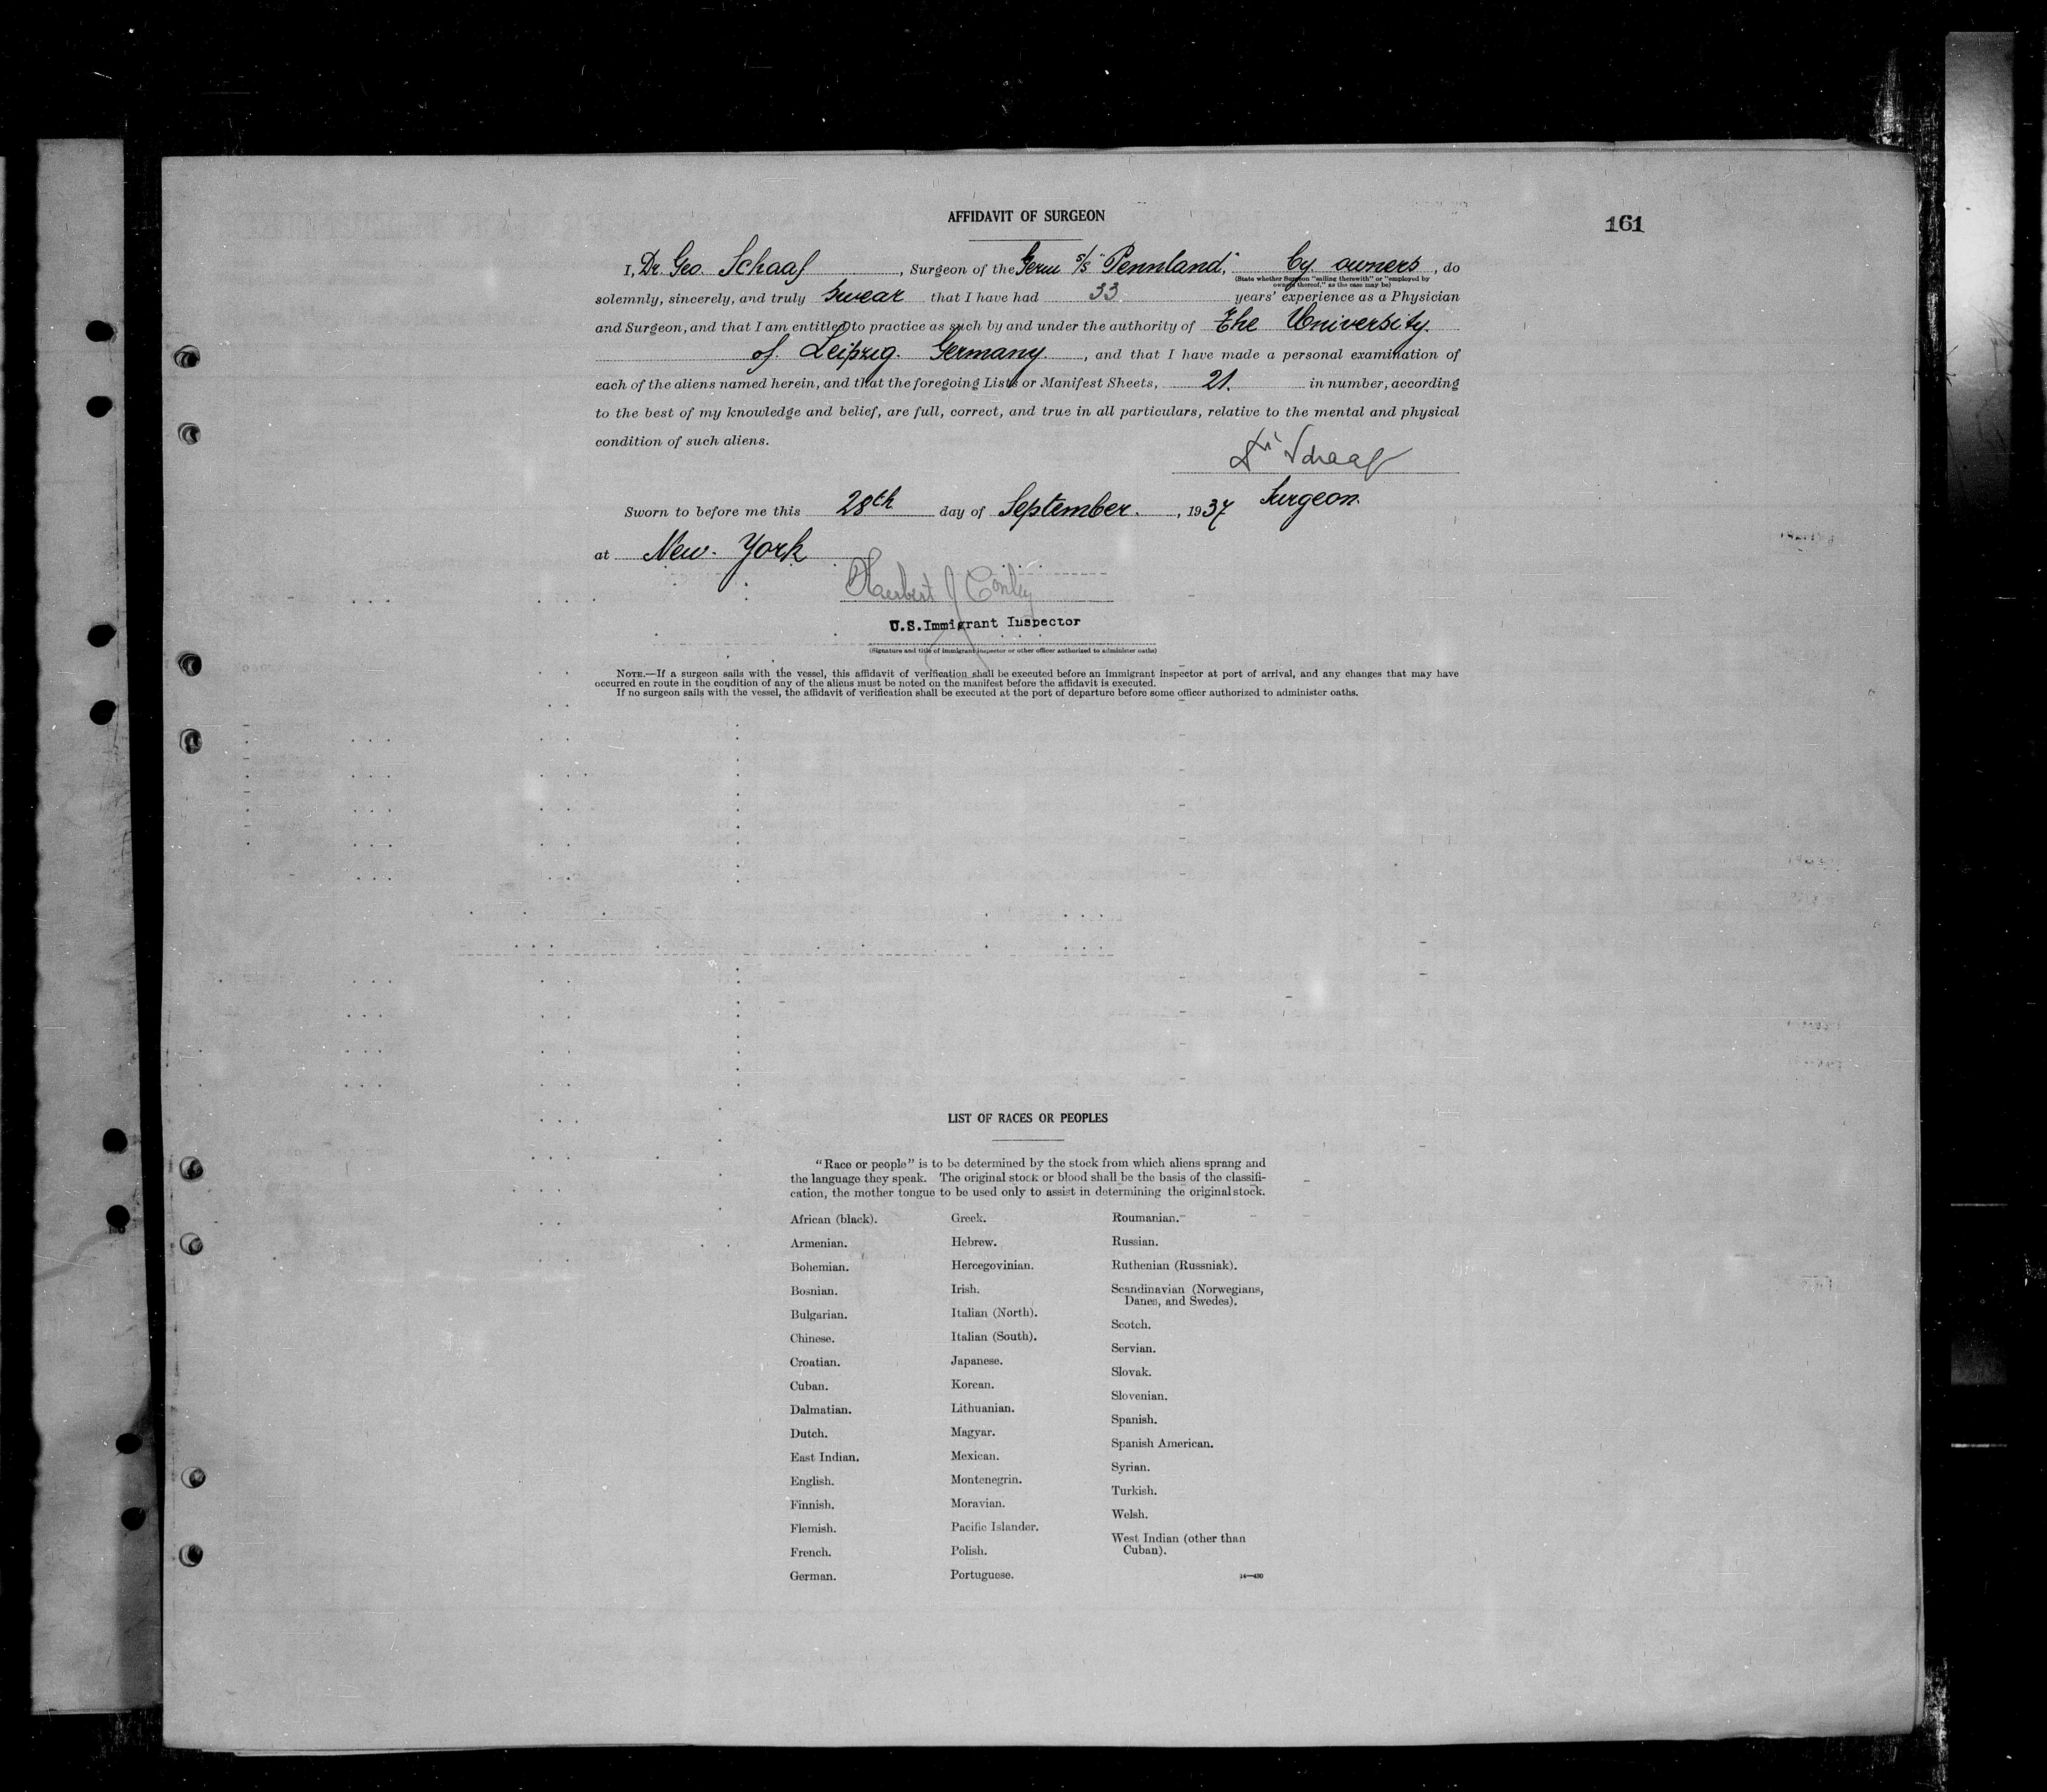 AFFIDAVIT OF SURGEON
161
I, Dr. Geo. Schaaf, Surgeon of the Germ s/s "Pennland," by owners, do
(State whether Surgeon "sailing therewith" or "employed by
owners thereof," as the case may be)
solemnly, sincerely, and truly swear that I have had 33 years' experience as a Physician
and Surgeon, and that I am entitled to practice as such by and under the authority of The University
of Leipzig. Germany, and that I have made a personal examination of
each of the aliens named herein, and that the foregoing Lists or Manifest Sheets, 21. in number, according
to the best of my knowledge and belief, are full, correct, and true in all particulars, relative to the mental and physical
condition of such aliens.
Dr Schaaf
Surgeon.
Sworn to before me this 28th day of September., 1937
at New-York
Herbert J Conley
U.S.Immigrant Inspector
(Signature and title of immigrant inspector or other officer authorized to administer oaths)
NOTE.—If a surgeon sails with the vessel, this affidavit of verification shall be executed before an immigrant inspector at port of arrival, and any changes that may have
occurred en route in the condition of any of the aliens must be noted on the manifest before the affidavit is executed.
If no surgeon sails with the vessel, the affidavit of verification shall be executed at the port of departure before some officer authorized to administer oaths.
LIST OF RACES OR PEOPLES
"Race or people" is to be determined by the stock from which aliens sprang and
the language they speak. The original stock or blood shall be the basis of the classifi-
cation, the mother tongue to be used only to assist in determining the original stock.
African (black).
Armenian.
Bohemian.
Bosnian.
Bulgarian.
Chinese.
Croatian.
Cuban.
Dalmatian.
Dutch.
East Indian.
English.
Finnish.
Flemish.
French.
German.
Greek.
Hebrew.
Hercegovinian.
Irish.
Italian (North).
Italian (South).
Japanese.
Korean.
Lithuanian.
Magyar.
Mexican.
Montenegrin.
Moravian.
Pacific Islander.
Polish.
Portuguese.
Roumanian.
Russian.
Ruthenian (Russniak).
Scandinavian (Norwegians,
Danes, and Swedes).
Scotch.
Servian.
Slovak.
Slovenian.
Spanish.
Spanish American.
Syrian.
Turkish.
Welsh.
West Indian (other than
Cuban).
14—430